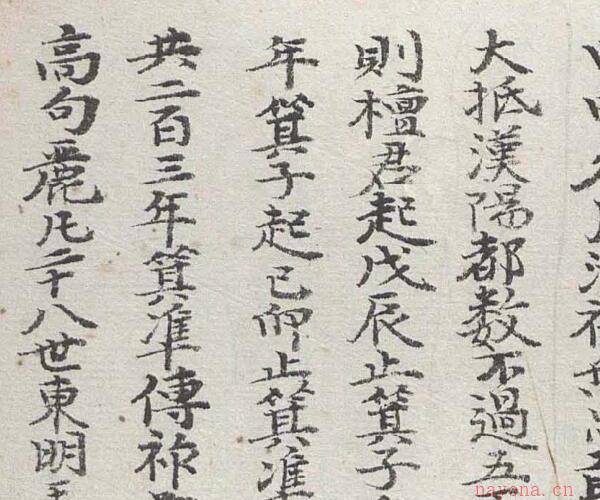 大抵漢陽都数不過五
則檀君起戊辰止箕子
年箕子起己卯止箕準
共二百三年箕準傳祚
高句麗凡二十八世東明
nayona.cn